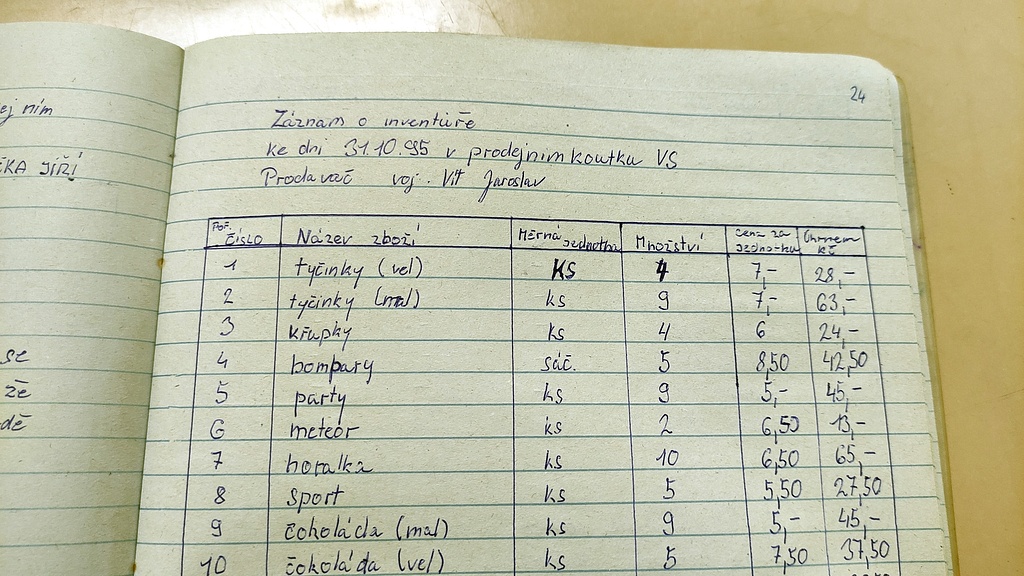 ej ním
ČKA JIŘÍ
se
že
dě
24
Záznam o inventůře
ke dni 31.10.95 v prodejním koutku VS
Prodavač voj. Vít Jaroslav
Poř. číslo Název zboží Měrná jednotka Množství cena za jednotku Úhrnem kč
1 tyčinky (vel) KS 4 7,- 28,-
2 tyčinky (mal) ks 9 7,- 63,-
3 křupky ks 4 6 24,-
4 bompary sáč. 5 8,50 42,50
5 party ks 9 5,- 45,-
6 meteor ks 2 6,50 13,-
7 horalka ks 10 6,50 65,-
8 sport ks 5 5,50 27,50
9 čokoláda (mal) ks 9 5,- 45,-
10 čokoláda (vel) ks 5 7,50 37,50